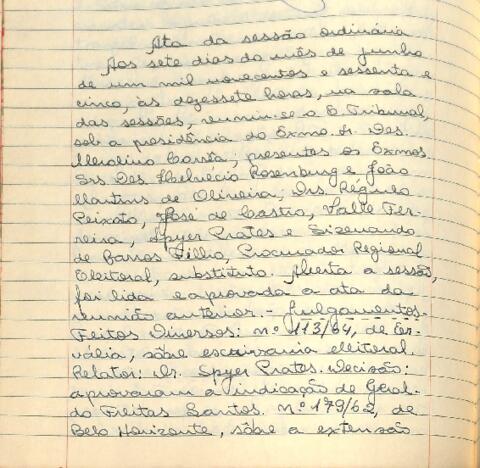 Ata da sessão ordinária
Aos sete dias do mês de junho
de um mil novecentos e sessenta e
cinco, às dezessete horas, na sala
das sessões, reuniu-se o E. Tribunal,
sob a presidência do Exmo. Sr. Des.
Merolino Corrêa, presentes os Exmos.
Srs. Des. Helvécio Rosenburg e João
Martins de Oliveira; Drs. Régulo
Peixoto, José de Castro, Valle Fer-
reira, Spyer Prates e Sizenando
de Barros Filho, Procurador Regional
Eleitoral, substituto. Aberta a sessão,
foi lida e aprovada a ata da
reunião anterior. - Julgamentos.
Feitos Diversos: nº 113/64, de Er-
válía, sôbre escrivania eleitoral.
Relator: Dr. Spyer Prates. Decisão:
aprovaram a indicação de Geral-
do Freitas Santos. Nº 179/62, de
Belo Horizonte, sôbre a extensão